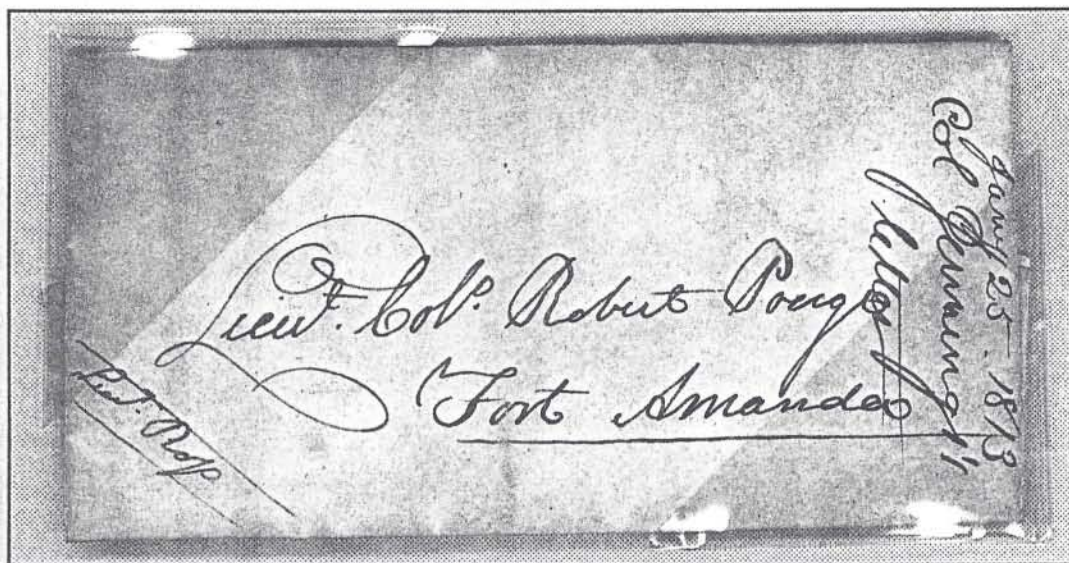 Lieut. Col°. Robert Pouge
Fort Amanda
Lieut. Ross
Jany 25. 1813
Col Jennings's
letter